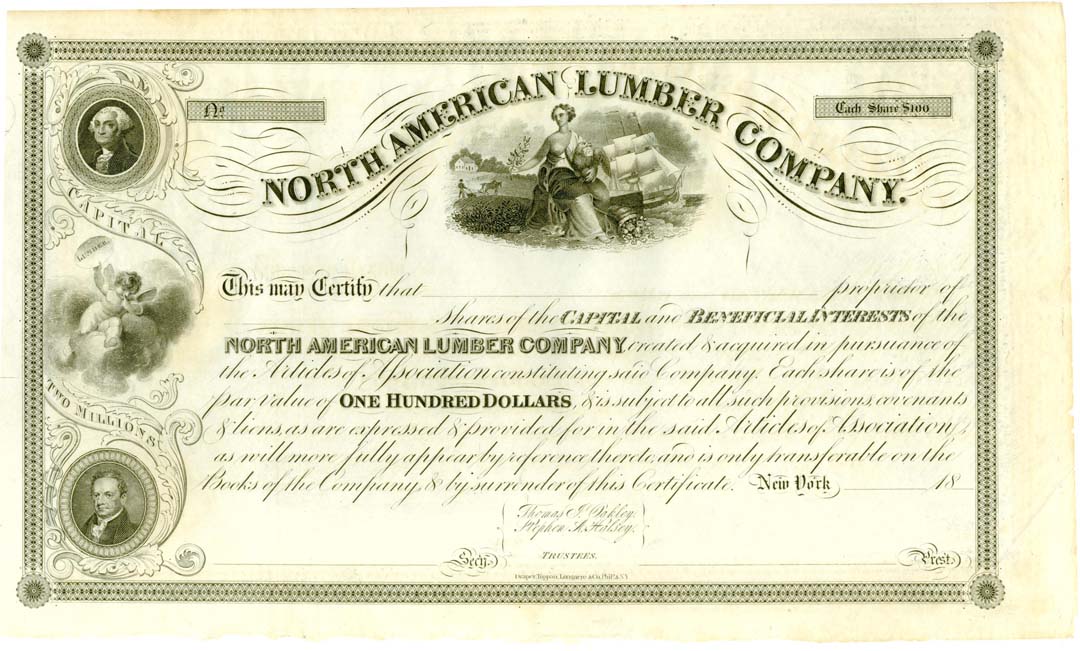 No.
Each Share $100
NORTH AMERICAN LUMBER COMPANY.
CAPITAL
LUMBER
TWO MILLIONS
This may Certify that proprietor of
Shares of the CAPITAL and BENEFICIAL INTERESTS of the
NORTH AMERICAN LUMBER COMPANY, created & acquired in pursuance of
the Articles of Association constituting said Company. Each share is of the
par value of ONE HUNDRED DOLLARS, & is subject to all such provisions, covenants
& liens, as are expressed & provided for in the said Articles of Association,
as will more fully appear by reference thereto, and is only transferable on the
Books of the Company, & by surrender of this Certificate. New York 18
Thomas J. Oakley.
Stephen A. Halsey.
TRUSTEES.
Secy.
Prest.
Draper, Toppan, Longacre & Co. Phila. & N.Y.